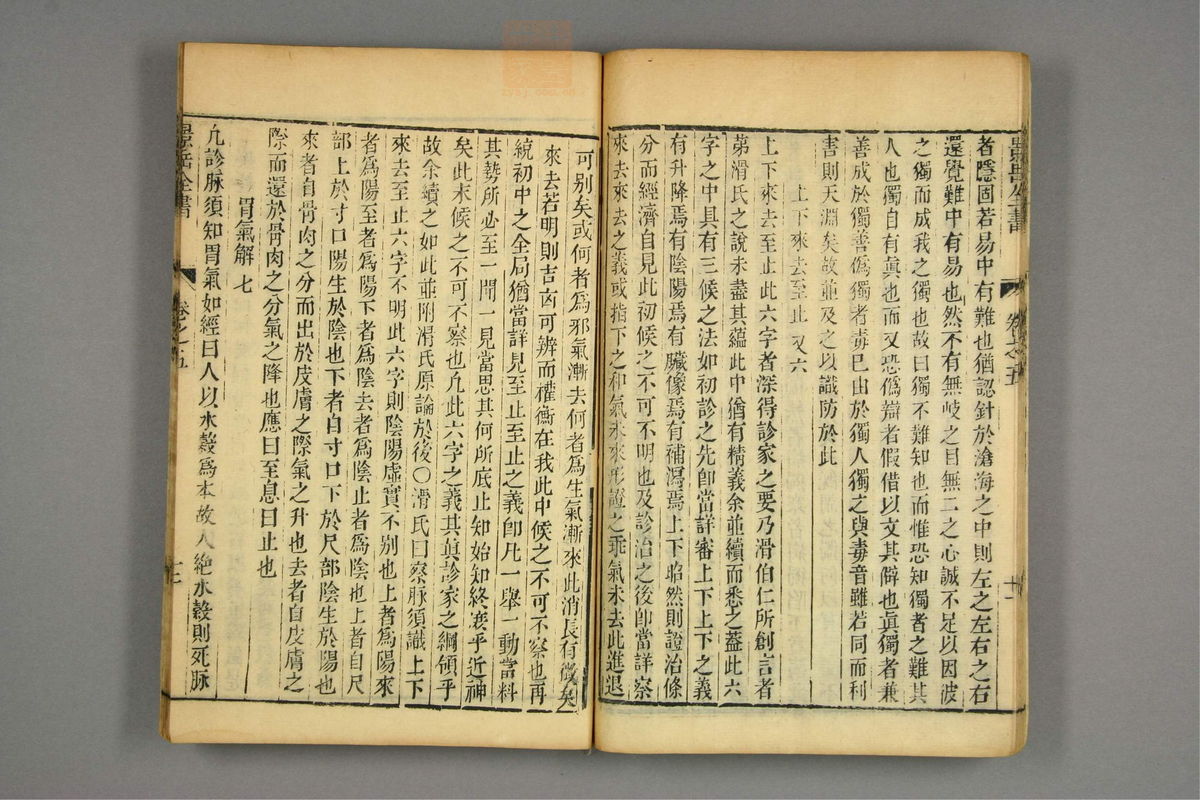 景岳全書 卷之五 十一
者隱固若易中有難也猶認針於滄海之中則左之左右之右
還覺難中有易也然不有無岐之目無二之心誠不足以因彼
之獨而成我之獨也故曰獨不難知也而惟恐知獨者之難其
人也獨自有眞也而又恐僞辯者假借以文其僻也眞獨者兼
善成於獨善僞獨者毒己由於獨人獨之與毒音雖若同而利
害則天淵矣故並及之以識防於此
上下來去至止 又六
上下來去至止此六字者深得診家之要乃滑伯仁所創言者
第滑氏之說未盡其蘊此中猶有精義余並續而悉之蓋此六
字之中具有三候之法如初診之先卽當詳審上下上下之義
有升降焉有陰陽焉有臟像焉有補瀉焉上下昭然則證治條
分而經濟自見此初候之不可不明也及診治之後卽當詳察
來去來去之義或指下之和氣未來形證之乖氣未去此進退
可別矣或何者爲邪氣漸去何者爲生氣漸來此消長有徵矣
來去若明則吉凶可辨而權衡在我此中候之不可不察也再
統初中之全局猶當詳見至止至止之義卽凡一舉一動當料
其勢所必至一聞一見當思其何所底止知始知終褎乎近神
矣此末候之不可不察也凡此六字之義其眞診家之綱領乎
故余續之如此並附滑氏原論於後○滑氏曰察脉須識上下
來去至止六字不明此六字則陰陽虛實不別也上者爲陽來
者爲陽至者爲陽下者爲陰去者爲陰止者爲陰也上者自尺
部上於寸口陽生於陰也下者自寸口下於尺部陰生於陽也
來者自骨肉之分而出於皮膚之際氣之升也去者自皮膚之
際而還於骨肉之分氣之降也應曰至息曰止也
胃氣解 七
凡診脉須知胃氣如經曰人以水穀爲本故人絶水穀則死脉
景岳全書 卷之五 十二